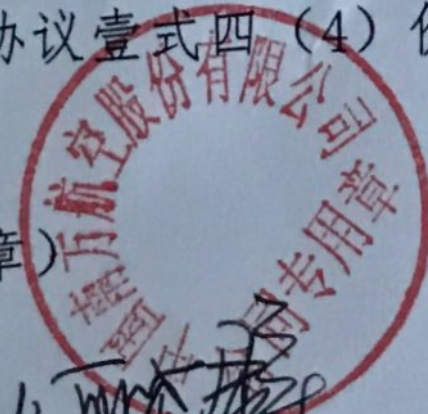 协议壹式四（4）份
章）
中国南方航空股份有限公司
合同专用章